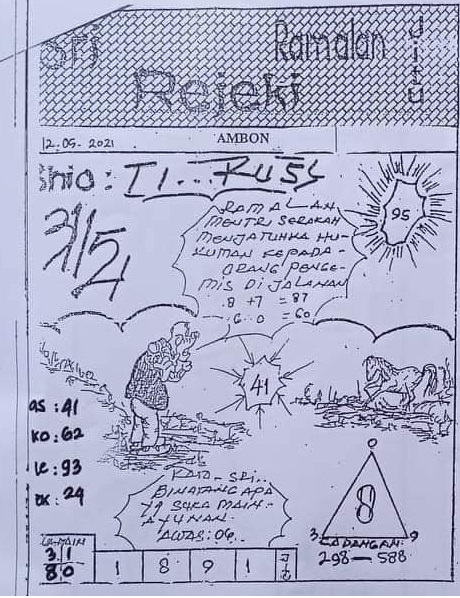 Sri
Ramalan
Jitu
Rejeki
12.05.2021
AMBON
Shio: TI..KUSS
95
RAMALAN
MENTRI SERAKAH
MENJATUHKA HU-
KUMAN KEPADA-
ORANG PENGE-
MIS DI JALANAN
8 +7 = 87
6 0 = 60
41
AS : 41
KO : 62
KE : 93
EK : 24
KATA - SRI..
BINATANG APA
YG SUKA MAIN-
AYUNAN.
AWAS: 06
8
3
9
CADANGAN:
298 — 588
3 1
80
1 8 9 1
Jitu